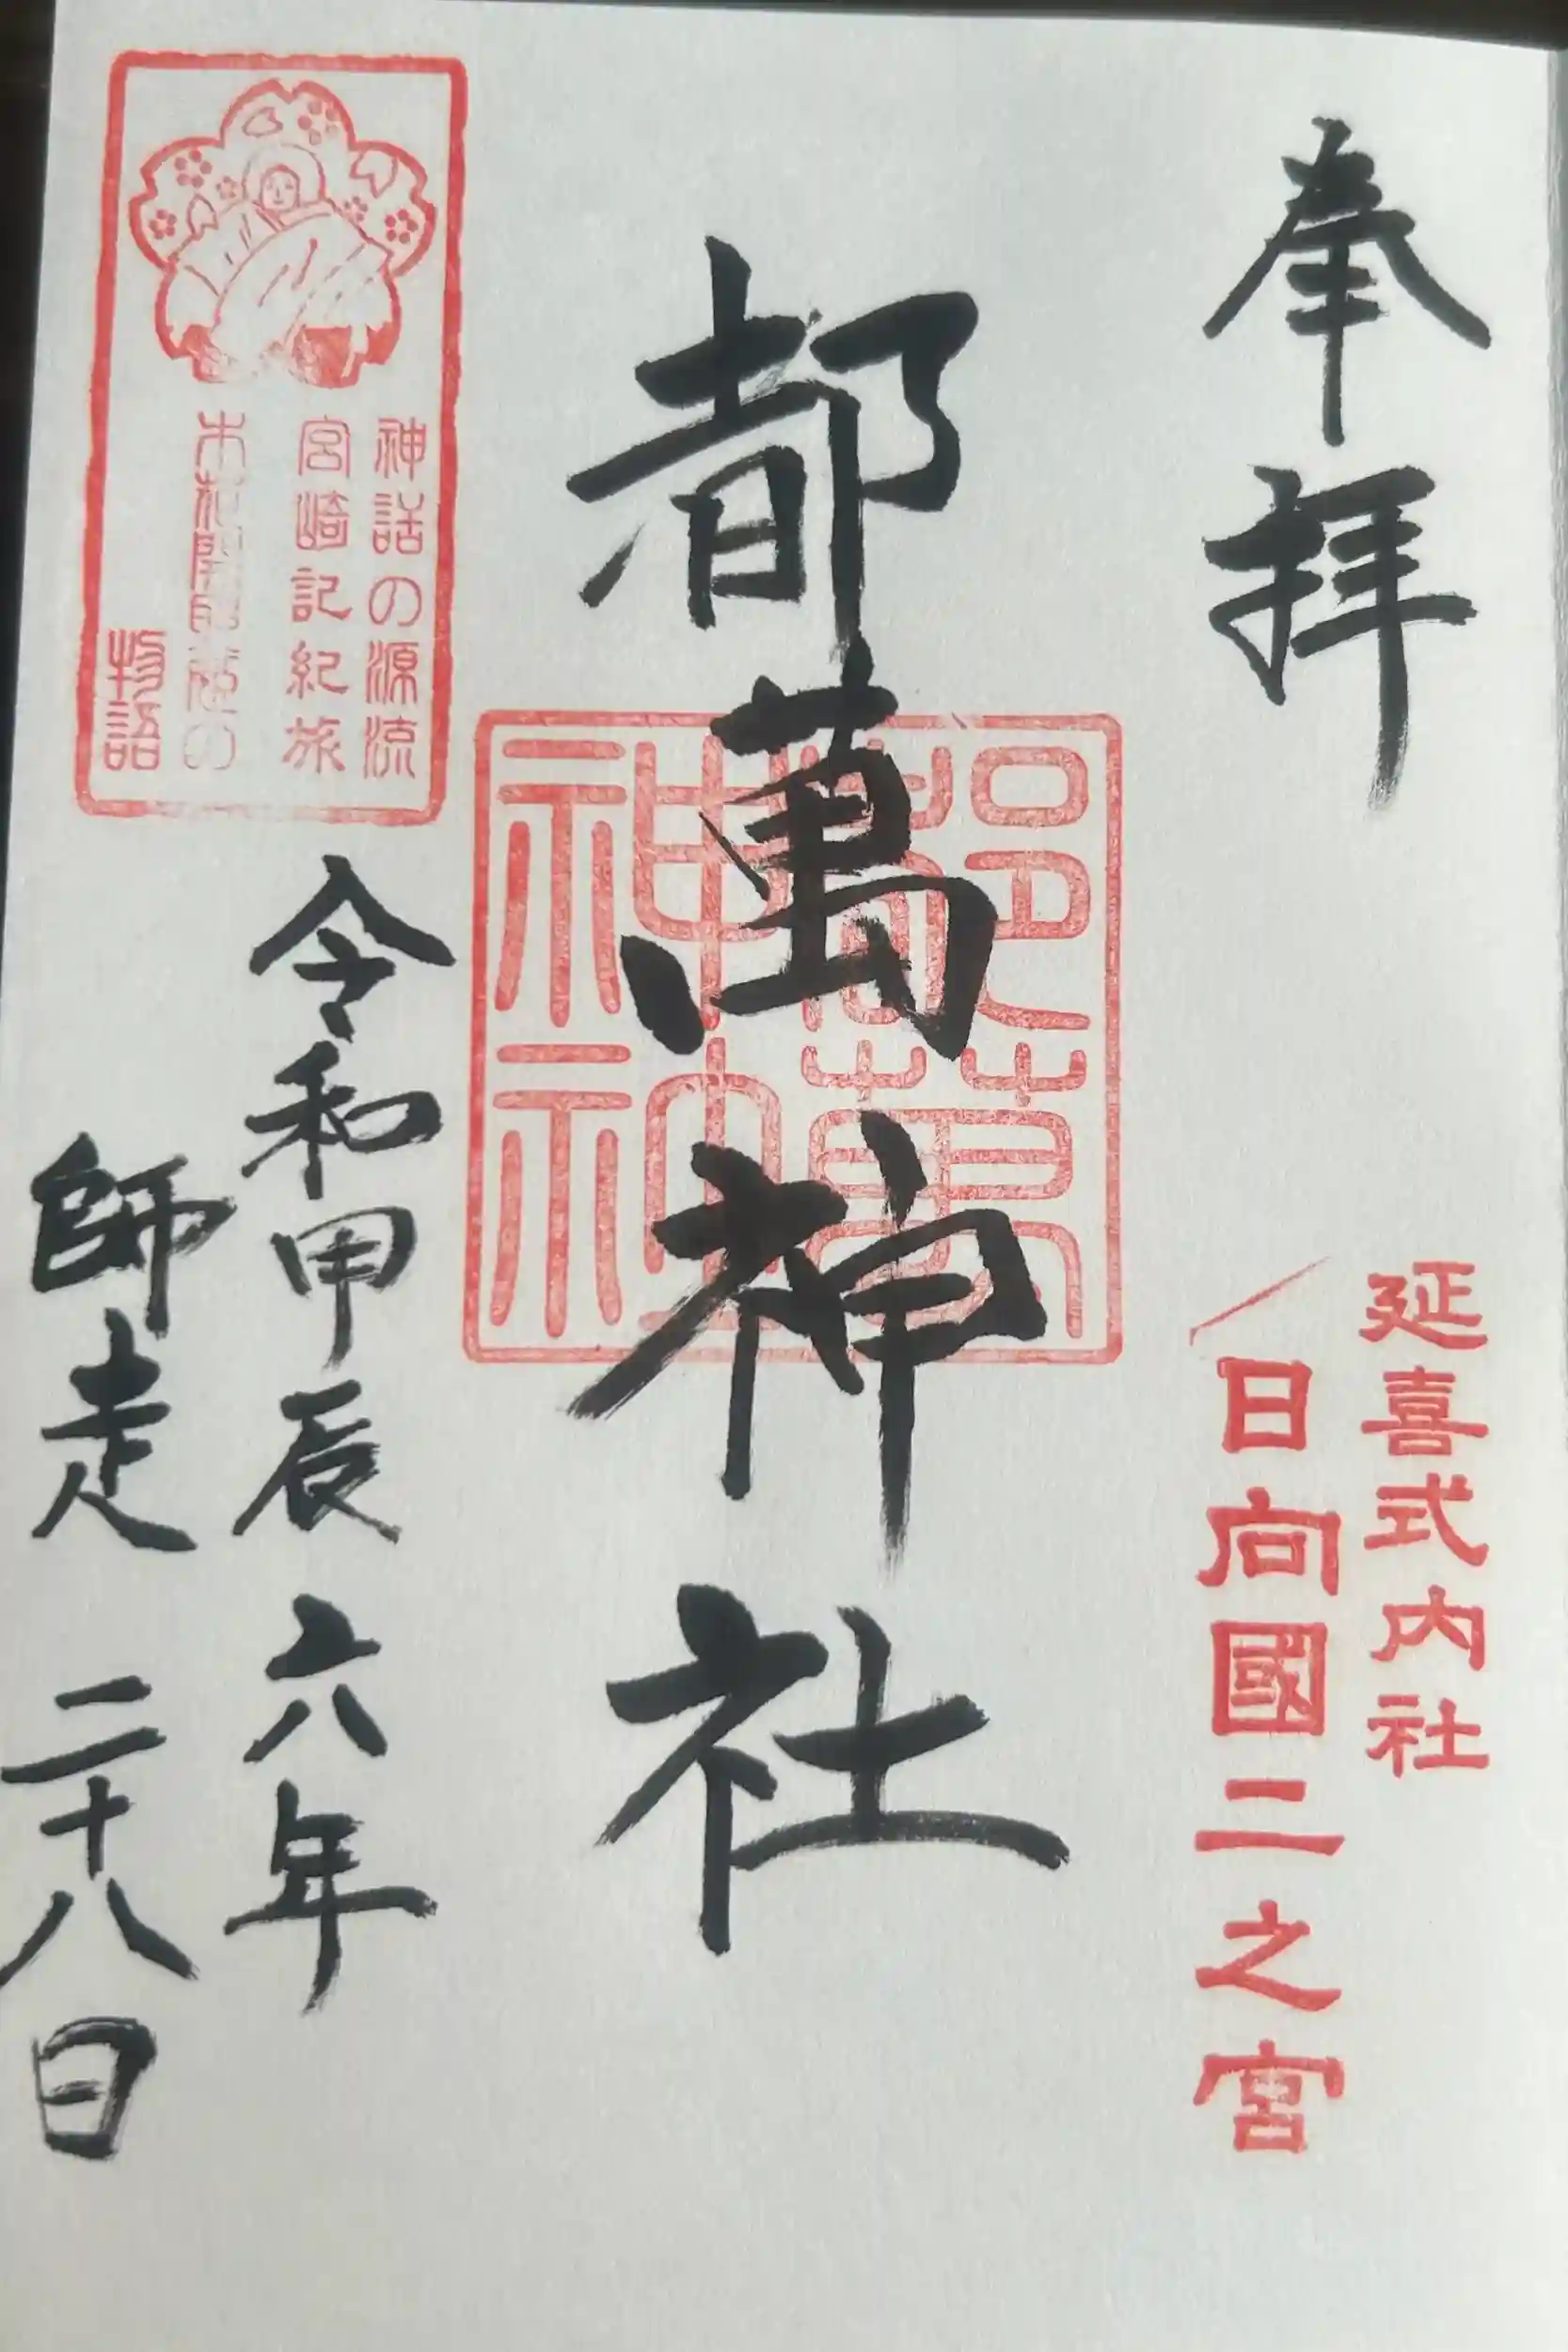 奉拝
延喜式内社
日向國二之宮
都萬神社
都萬神社
神話の源流
宮崎記紀旅
木花開耶姫の
物語
令和甲辰六年
師走二十八日